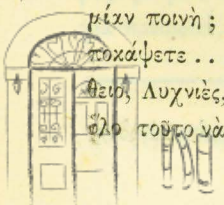 μίαν ποινὴ ;
ποκάψετε . .
θειο, Λυχνιὲς,
ὅλο τοῦτο νὰ